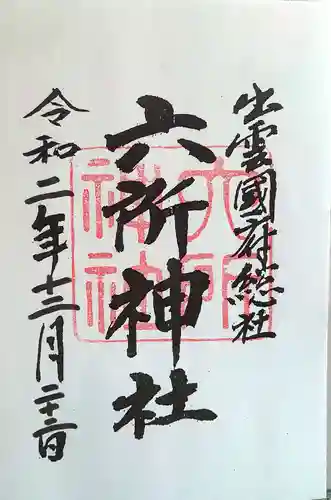 出雲國府総社
六所神社
令和二年十二月二十二日
六所
神社